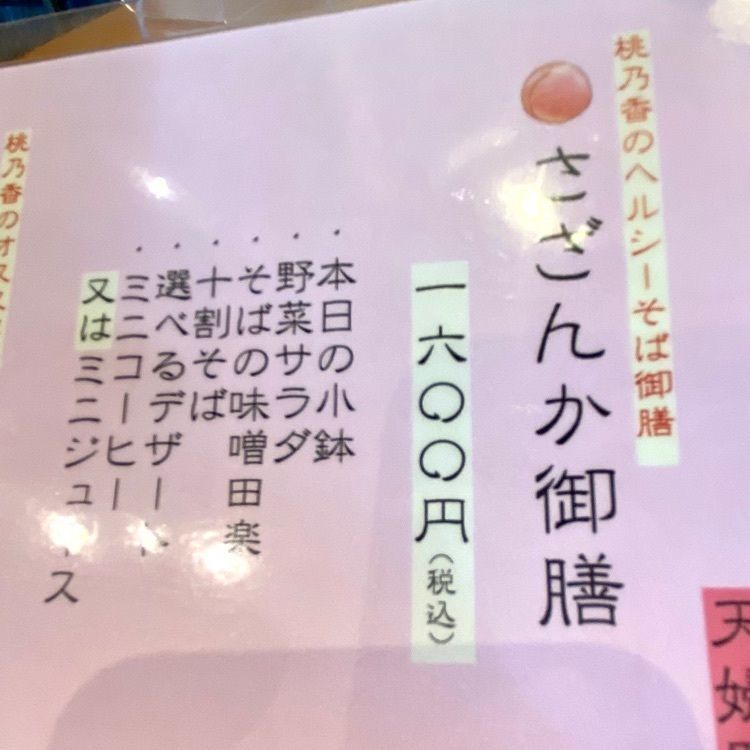 桃乃香のヘルシーそば御膳
さざんか御膳
一六〇〇円(税込)
・本日の小鉢
・野菜サラダ
・そばの味噌田楽
・十割そば
・選べるデザート
・ミニコーヒー
又はミニジュース
桃乃香のオススメ
天